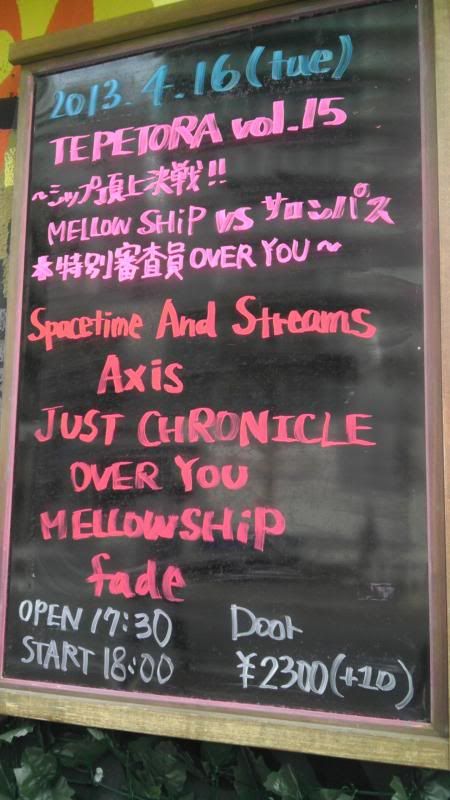 2013.4.16(tue)
TEPETORA vol.15
～シップ頂上決戦!!
MELLOW SHiP VS サロンパス
*特別審査員 OVER YOU～
Spacetime And Streams
Axis
JUST CHRONICLE
OVER YOU
MELLOWSHiP
fade
OPEN 17:30 Door
START 18:00 ¥2300(+1D)